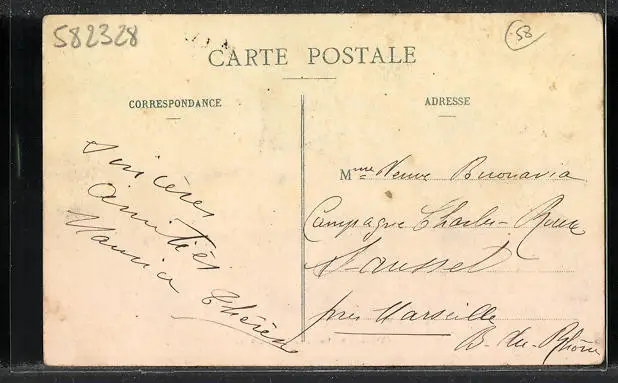 582328
58
CARTE POSTALE
CORRESPONDANCE
Sincères
amitiés
Maurice Thérèse
ADRESSE
Mme Veuve Buonavia
Campagne Charles-Roux
Sausset
près Marseille
B-du-Rhône